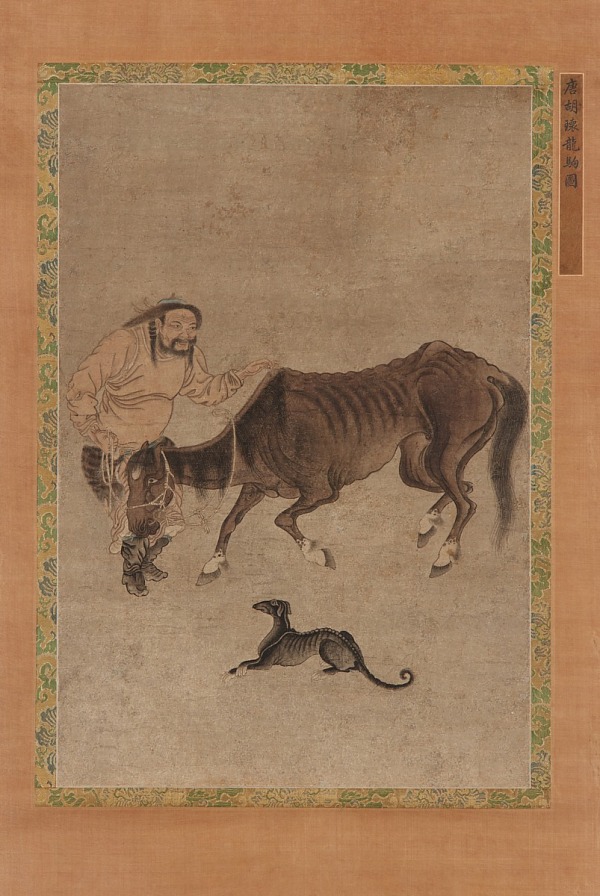 唐胡瓌龍駒圖